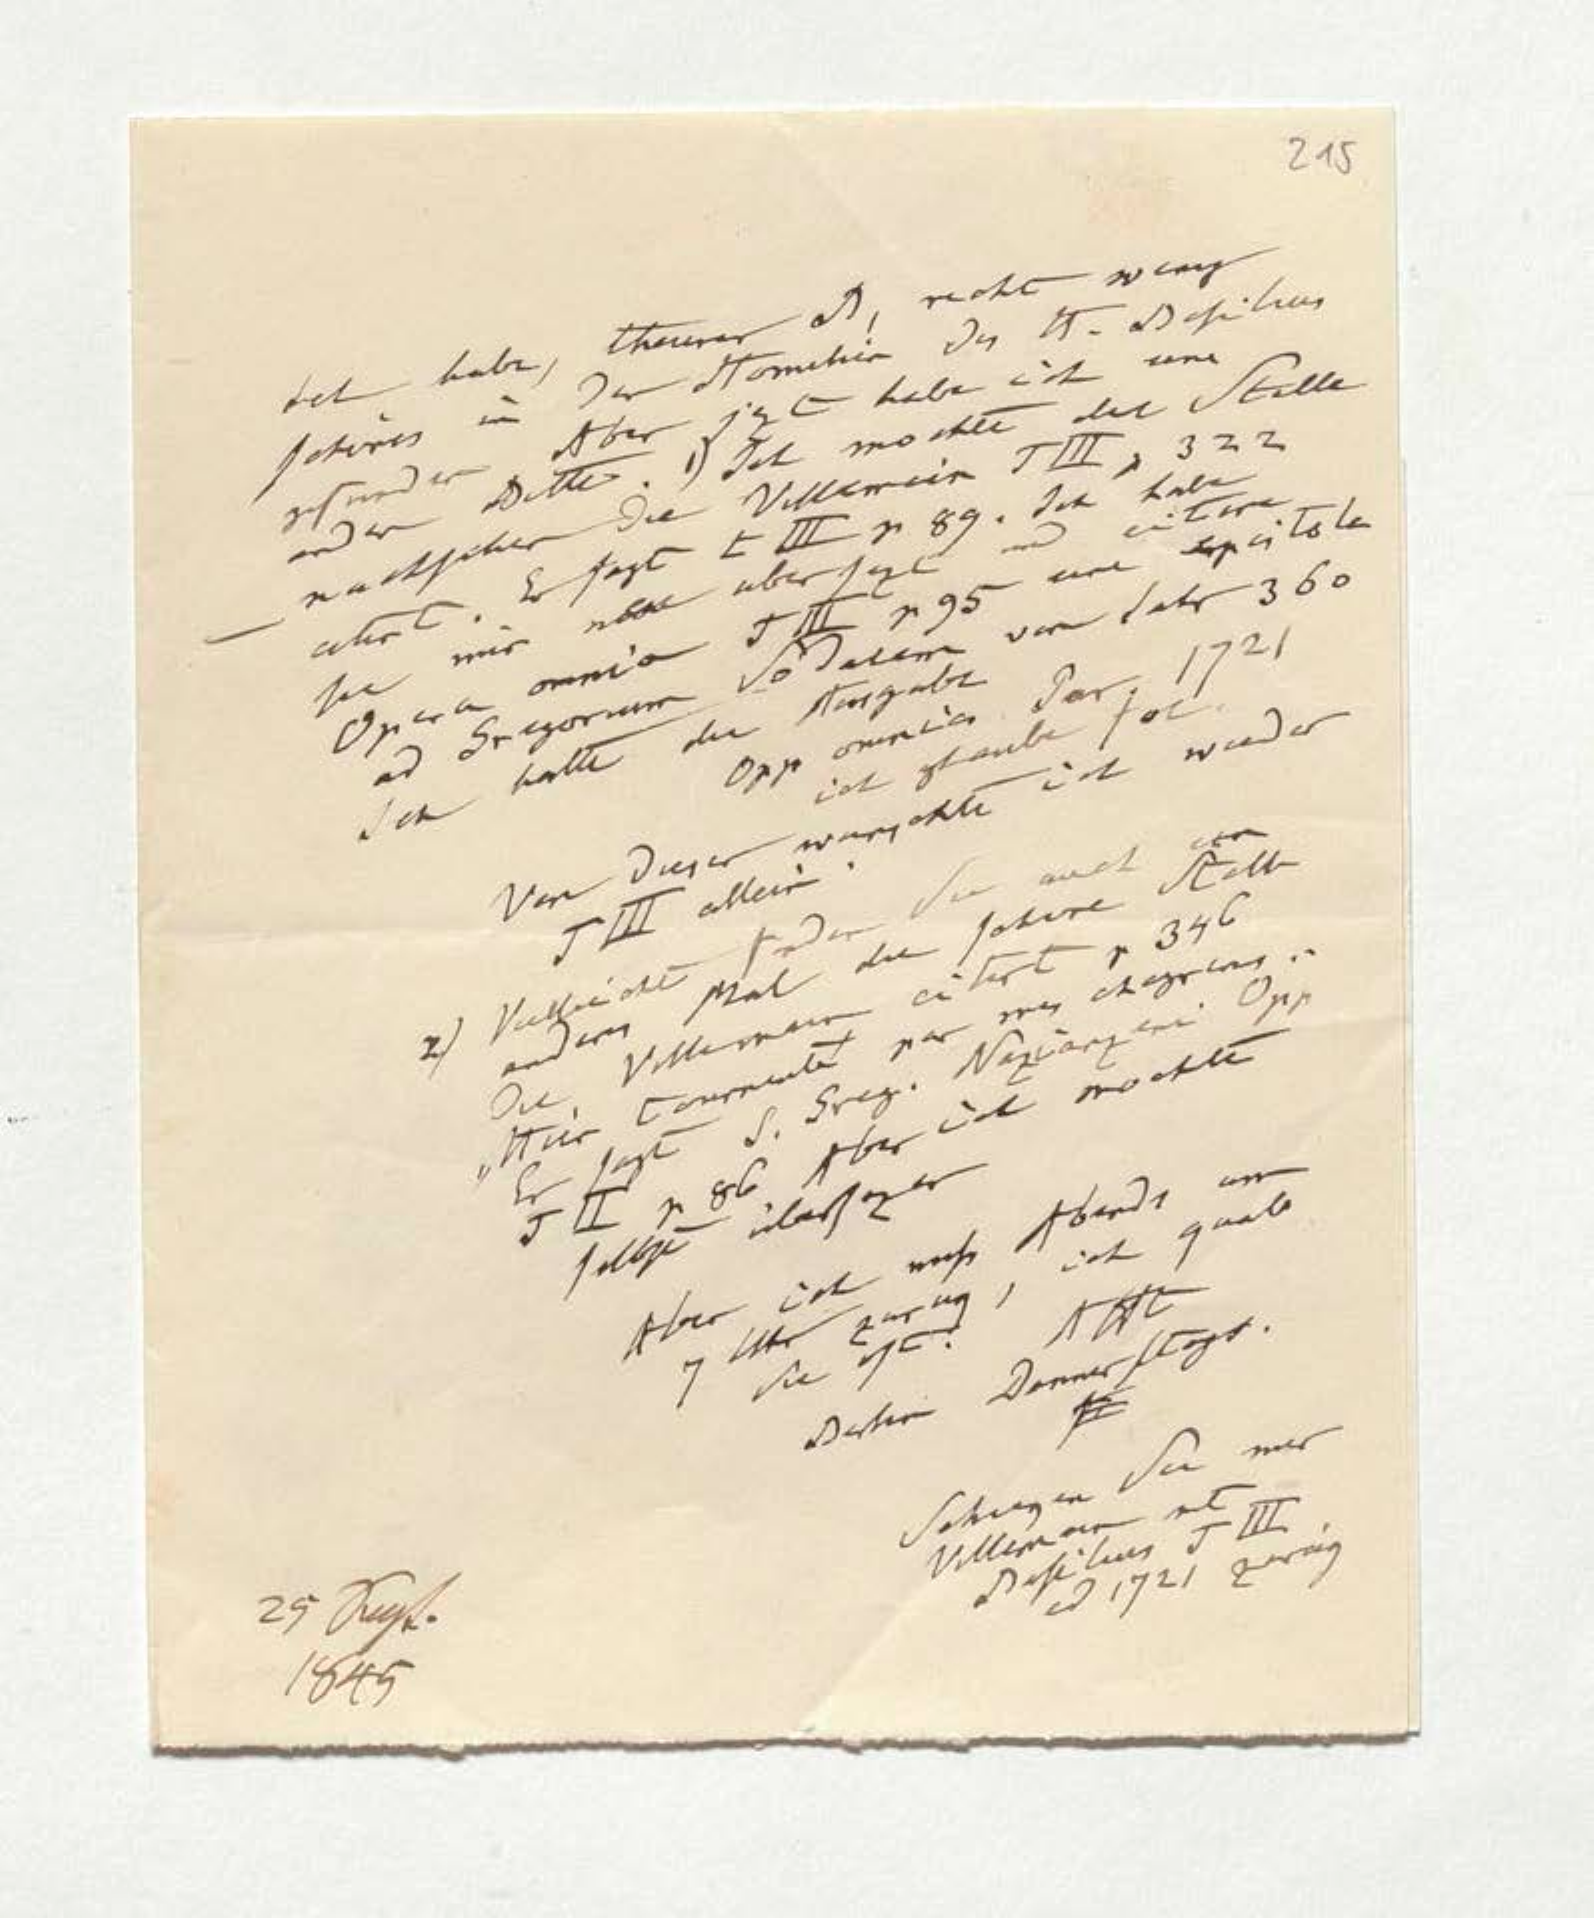 215
Ich habe, theurer B, recht wenig
schönes in den Homelien des H. Basilius
gefunden Aber jezt habe ich eine
andere Bitte. 1) Ich mochte die Stelle
nachsehen die Villemain T III p 322
citirt. Er sagt t III p 89. Ich habe
sie mir ubersezt und citire
Opera omnia T III p 95 eine epistola
ad Gregorium Sodalem vom Jahr 360
Ich hatte die Ausgabe
Opp omnia Par. 1721
ich glaube fol.
Von dieser wunschte ich wieder
T III allein.
2) Vielleicht finden Sie auch ein
anderes Mal die schöne Stelle
die Villemain citirt p 346
„Hier tourmenté par mes chagrins..
Er sagt S. Greg. Nazianzeni Opp
T II p 86 Aber ich mochte
selbst übersezen
Aber ich muß Abends um
7 Uhr zuruk, ich quale
Sie oft. AHt
Berlin Donnerstags.
Schiken Sie mir
Villemain mit
Basilius T III
ed 1721 zurük
25 Sept.
1845